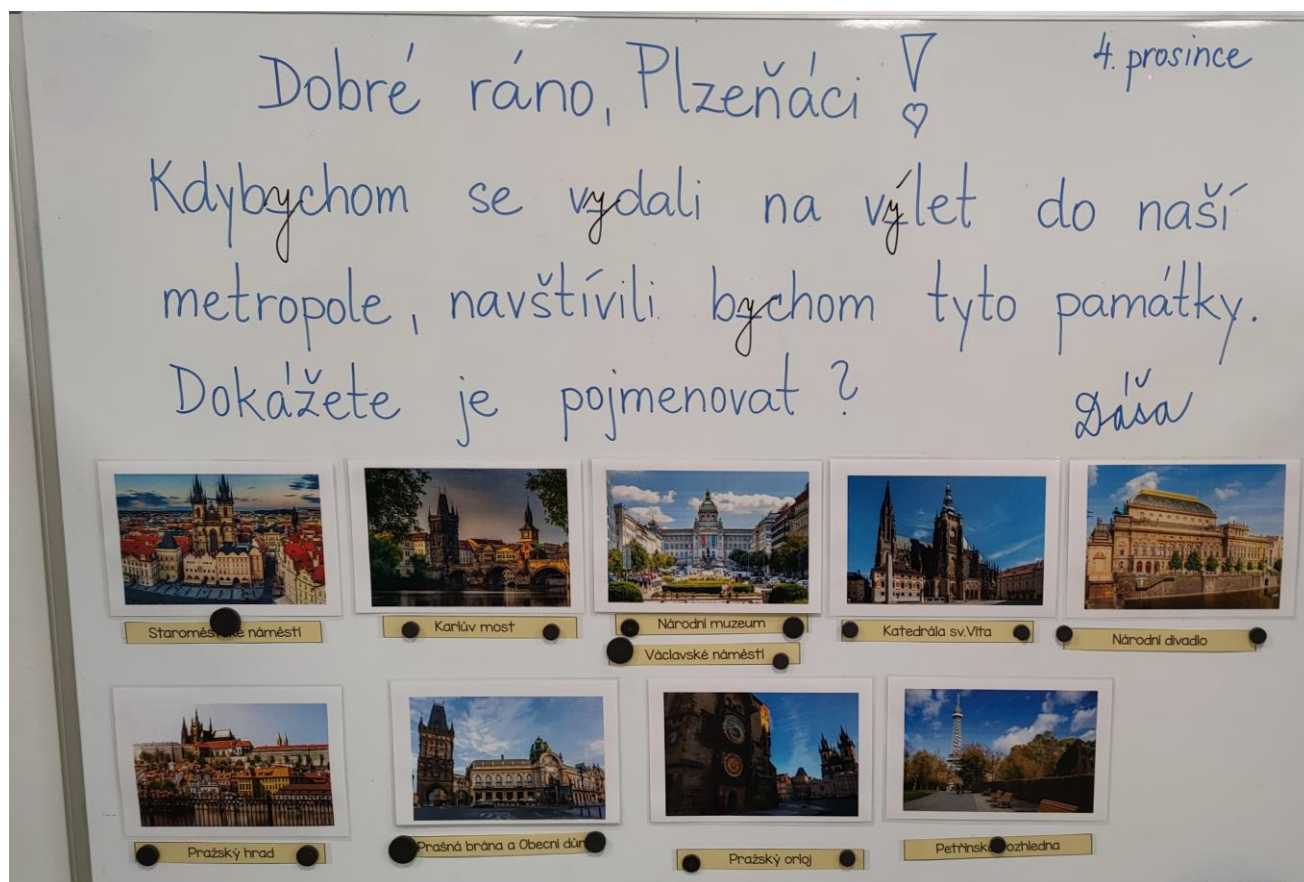 4. prosince
Dobré ráno, Plzeňáci!
Kdybychom se vydali na výlet do naší
metropole, navštívili bychom tyto památky.
Dokážete je pojmenovat?
Dáša
Staroměstské náměstí
Karlův most
Národní muzeum
Václavské náměstí
Katedrála sv.Víta
Národní divadlo
Pražský hrad
Prašná brána a Obecní dům
Pražský orloj
Petřínská rozhledna